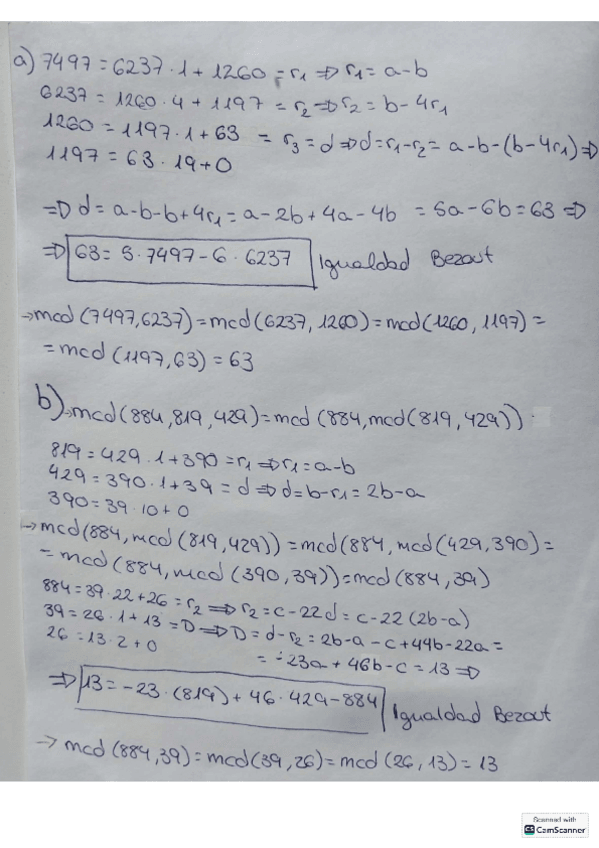 a) 7497 = 6237·1 + 1260 = r₁ ⇒ r₁ = a-b
6237 = 1260·4 + 1197 = r₂ ⇒ r₂ = b-4r₁
1260 = 1197·1 + 63 = r₃ = d ⇒ d = r₁-r₂ = a-b-(b-4r₁) ⇒
1197 = 63·19+0
⇒ d = a-b-b+4r₁ = a-2b+4a-4b = 5a-6b = 63 ⇒
⇒ 63 = 5·7497-6·6237 Igualdad Bezout
→mcd(7497,6237) = mcd(6237,1260) = mcd(1260,1197) =
= mcd(1197,63) = 63
b) →mcd(884,819,429) = mcd(884,mcd(819,429))
819 = 429·1+390 = r₁ ⇒ r₁ = a-b
429 = 390·1+39 = d ⇒ d = b-r₁ = 2b-a
390 = 39·10+0
→mcd(884,mcd(819,429)) = mcd(884,mcd(429,390) =
= mcd(884,mcd(390,39)) = mcd(884,39)
884 = 39·22+26 = r₂ ⇒ r₂ = c-22d = c-22(2b-a)
39 = 26·1+13 = D ⇒ D = d-r₂ = 2b-a-c+44b-22a =
26 = 13·2+0
= -23a+46b-c = 13 ⇒
⇒ 13 = -23·(819)+46·429-884 Igualdad Bezout
→ mcd(884,39) = mcd(39,26) = mcd(26,13) = 13
Scanned with
CS CamScanner